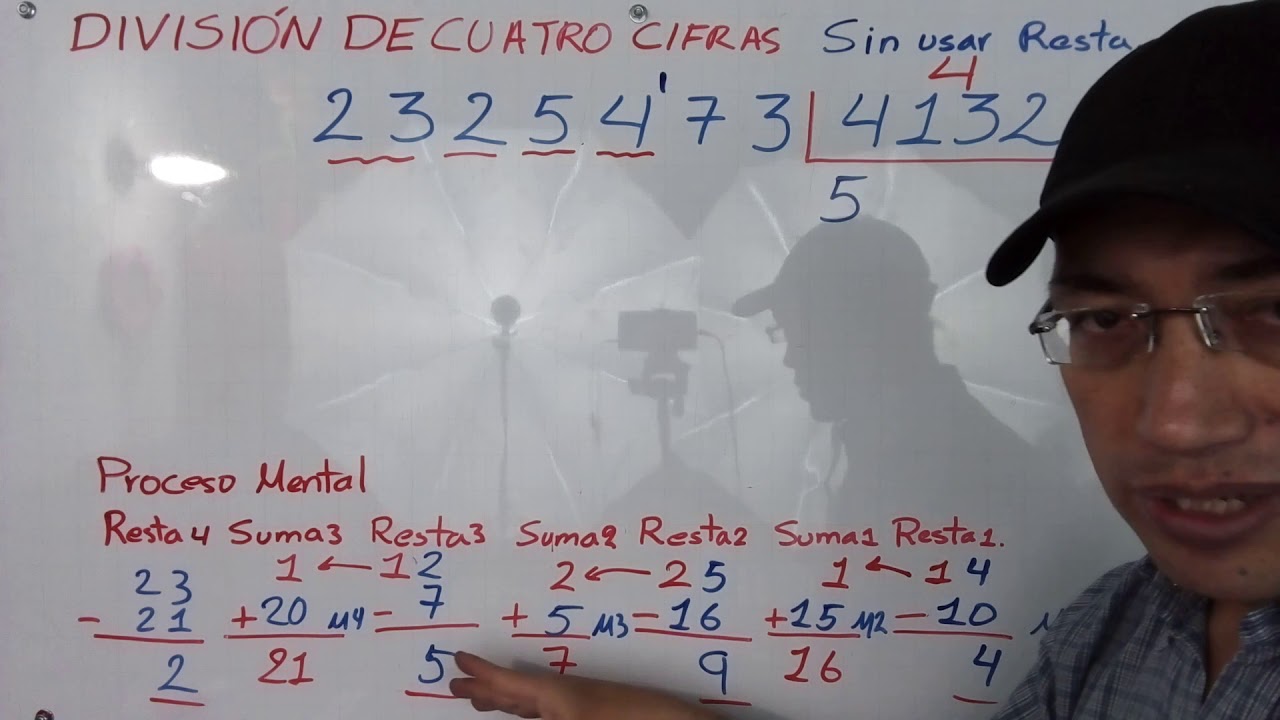 DIVISIÓN DE CUATRO CIFRAS Sin usar Resta
4
23254'73 4132
5
Proceso Mental
Resta4 Suma3 Resta3 Suma2 Resta2 Suma1 Resta1.
1 ← 12 2 ← 25 1 ← 14
23 +20 M4 - 7 + 5 M3 -16 +15 M2 - 10
- 21
2 21 5 7 9 16 4